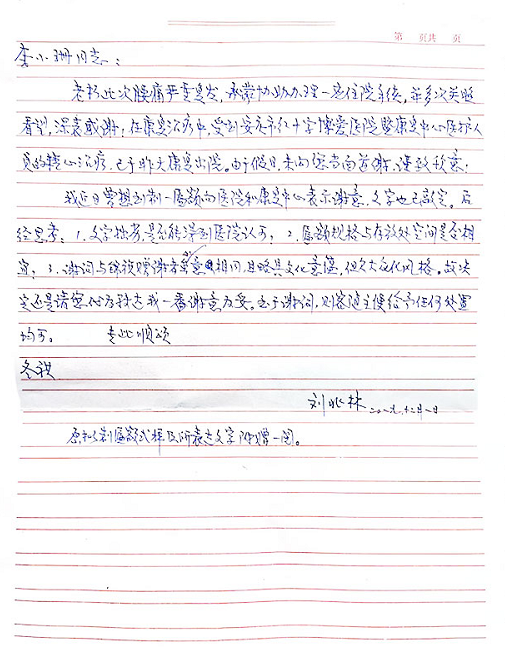 第 页共 页
李小珊同志：
老朽此次腰痛严重复发，承蒙协助办理一应住院手续，并多次关照
看望，深表感谢；在康复治疗中，受到安庆市红十字博爱医院暨康复中心医护人
员的精心治疗，已于昨天康复出院。由于假日，未向您当面道谢，谨致歉意；
我近日曾想到制一匾额向医院和康复中心表示谢意，文字也已敲定。后
经思考：1.文字拙劣，是否能得到医院认可；2.匾额规格与存放处空间是否相
宜；3.谢词与锦旗赠谢者意思相同，且略具文化意蕴，但欠大众化风格。故决
定还是请您代为转达我一番谢意为要。至于谢词，则答随主便给予任何处置
均可。 专此 顺颂
冬祺
刘兆林 二〇一九.十二月一日
原拟制匾额式样及所表达文字附赠一阅。